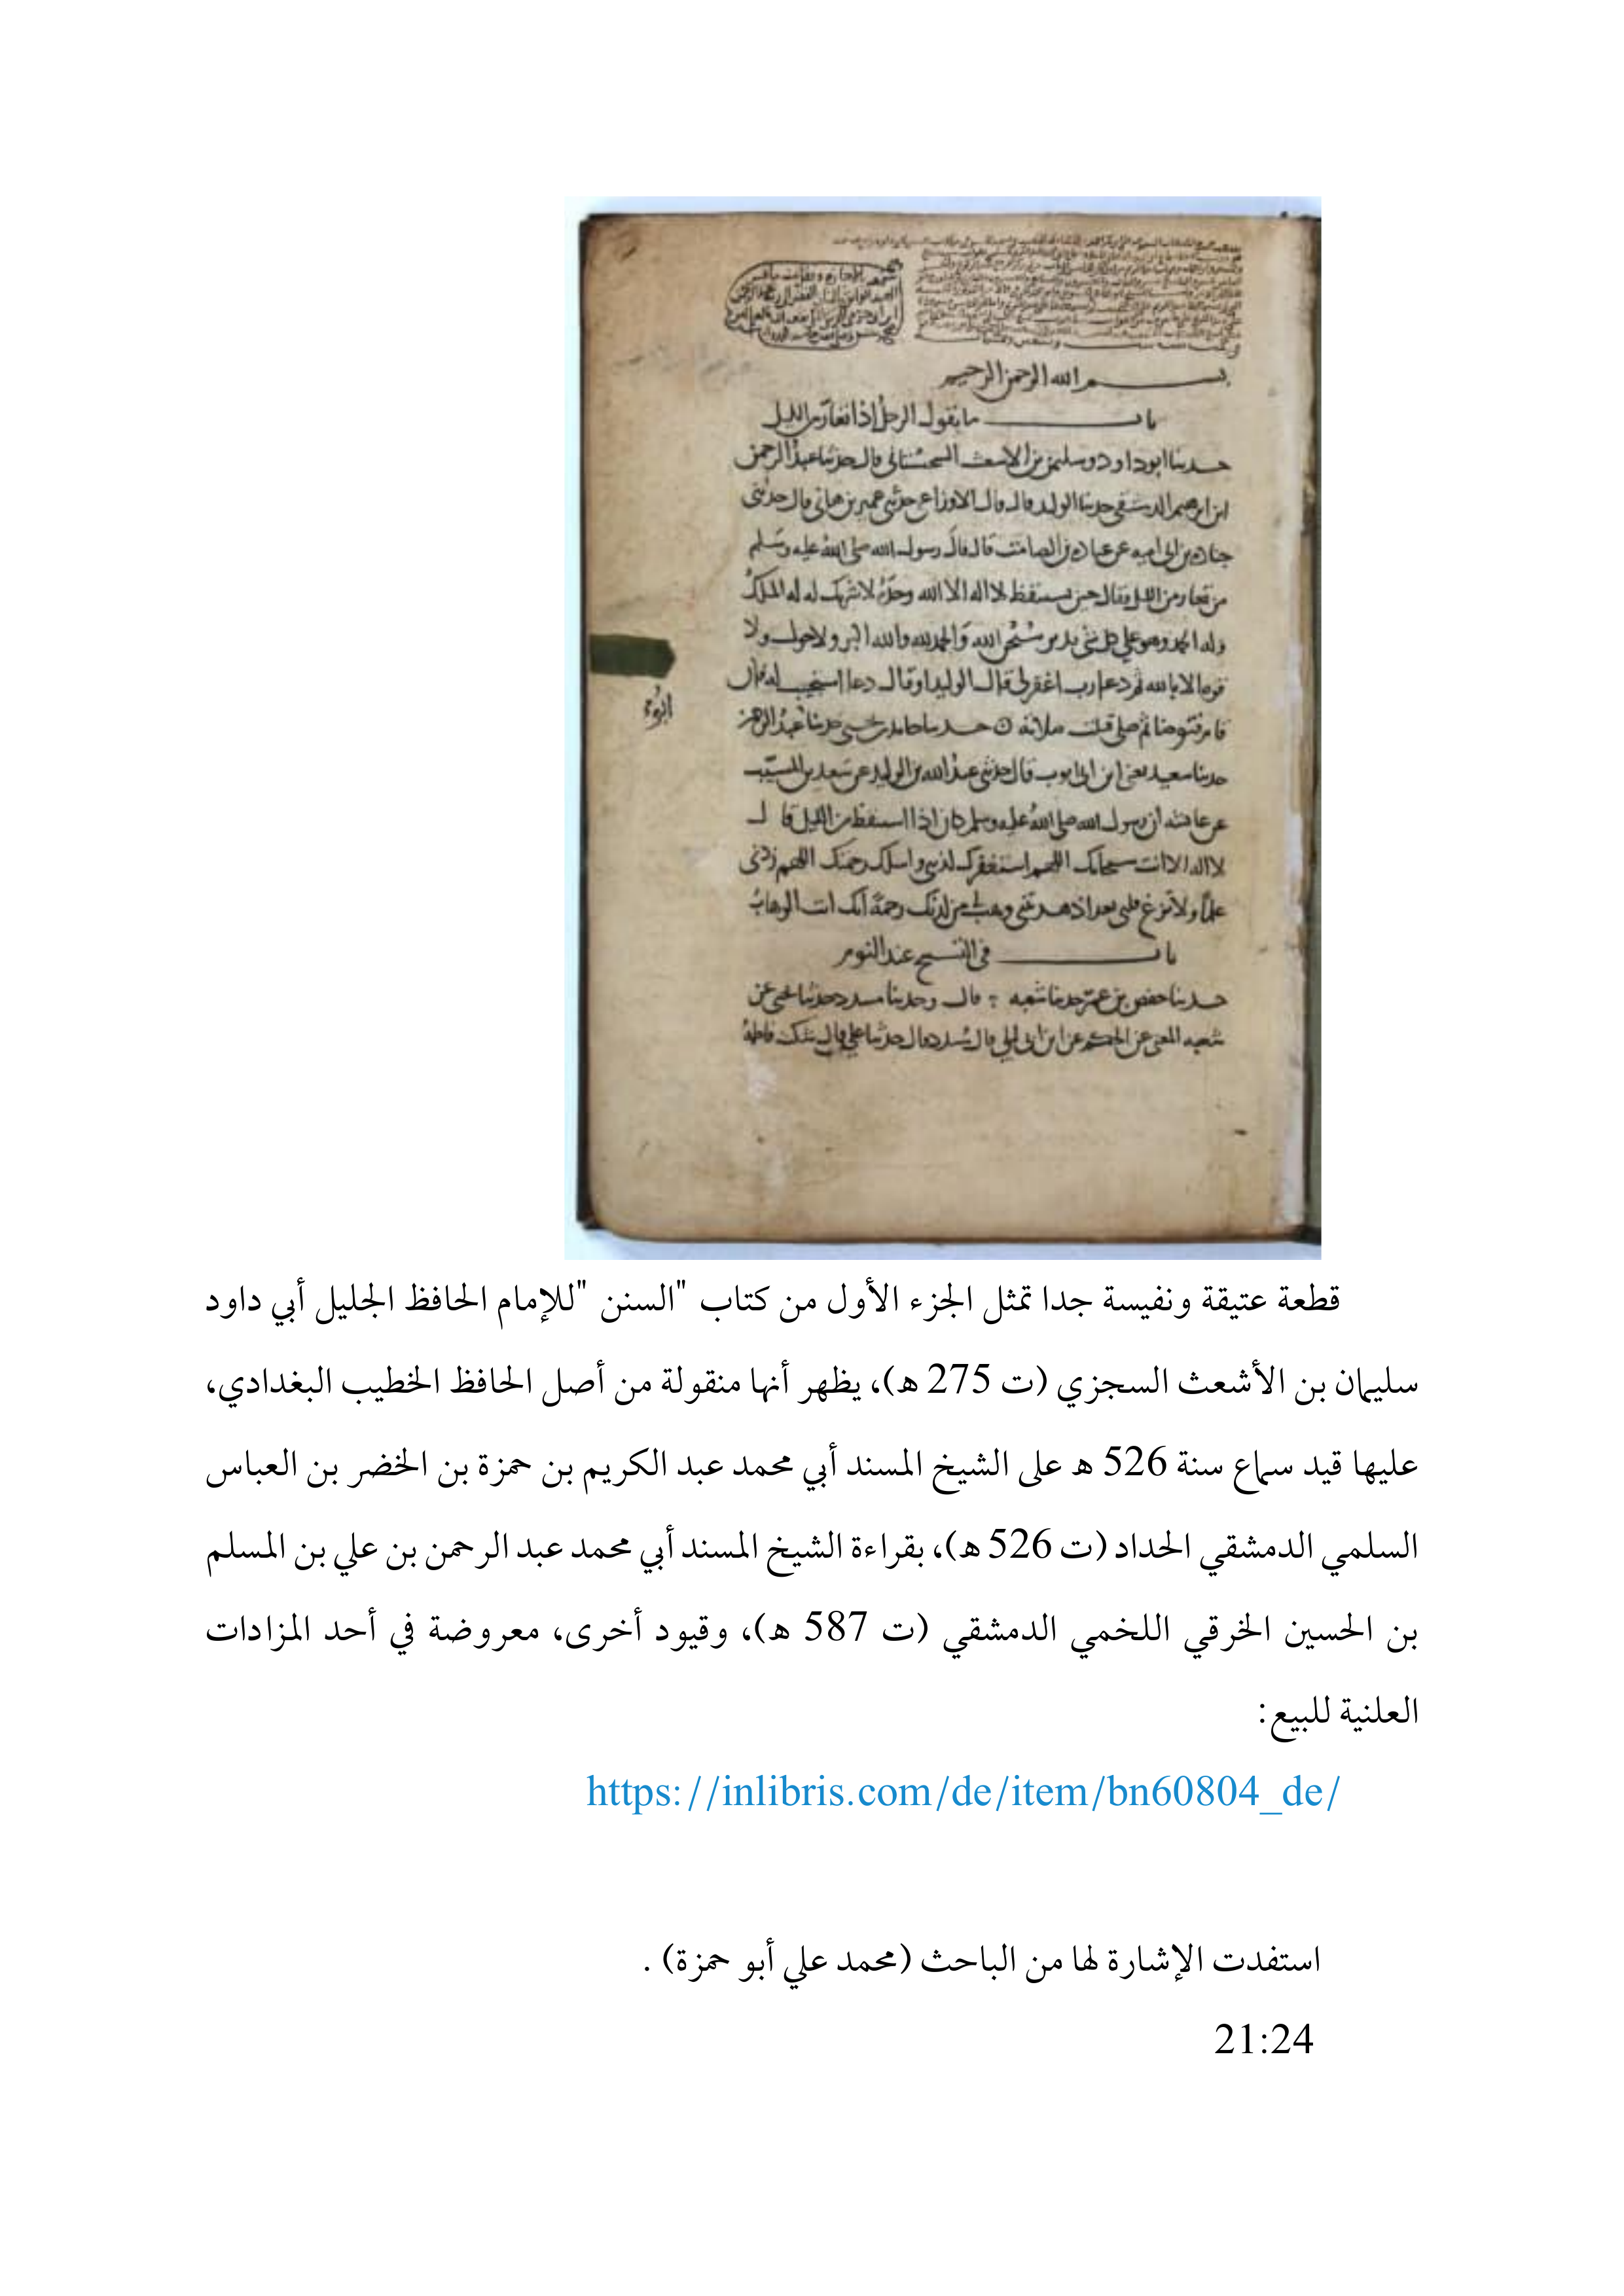 بسم الله الرحمن الرحيم
باب ما يقول الرجل إذا تعار من الليل
حدثنا ابو داود سليمن بن الاشعث السجستاني قال حدثنا عبد الرحمن
ابن ابرهيم الدمشقي حدثنا الوليد قال قال الاوزاعي حدثني عمير بن هاني قال حدثني
جناده بن ابي اميه عن عباده بن الصامت قال قال رسول الله صلى الله عليه وسلم
من تعار من الليل فقال حين يستيقظ لا اله الا الله وحده لا شريك له له الملك
وله الحمد وهو على كل شي قدير سبحن الله والحمد لله والله اكبر ولا حول ولا
قوه الا بالله ثم دعا رب اغفر لي قال الوليد او قال دعا استجيب له فان
قام فتوضا ثم صلى قبلت صلاته حدثنا حامد بن يحيى حدثنا ابو عبد الرحمن
حدثنا سعيد يعني ابن ابي ايوب قال حدثني عبد الله بن الوليد عن سعيد بن المسيب
عن عائشه ان رسول الله صلى الله عليه وسلم كان اذا استيقظ من الليل قال
لا اله الا انت سبحانك اللهم استغفرك لذنبي واسلك رحمتك اللهم زدني
علما ولا تزغ قلبي بعد اذ هديتني وهب لي من لدنك رحمة انك انت الوهاب
باب في التسبيح عند النوم
حدثنا حفص بن عمر حدثنا شعبه قال وحدثنا مسدد حدثنا يحيى عن
شعبه المعنى عن الحكم عن ابن ابي ليلى قال مسدد قال حدثنا علي قال شكت فاطمة
قطعة عتيقة ونفيسة جدا تمثل الجزء الأول من كتاب "السنن "للإمام الحافظ الجليل أبي داود
سليمان بن الأشعث السجزي (ت 275 ه)، يظهر أنها منقولة من أصل الحافظ الخطيب البغدادي،
عليها قيد سماع سنة 526 ه على الشيخ المسند أبي محمد عبد الكريم بن حمزة بن الخضر بن العباس
السلمي الدمشقي الحداد (ت 526 ه)، بقراءة الشيخ المسند أبي محمد عبد الرحمن بن علي بن المسلم
بن الحسين الخرقي اللخمي الدمشقي (ت 587 ه)، وقيود أخرى، معروضة في أحد المزادات
العلنية للبيع:
https://inlibris.com/de/item/bn60804_de/
استفدت الإشارة لها من الباحث (محمد علي أبو حمزة) .
21:24